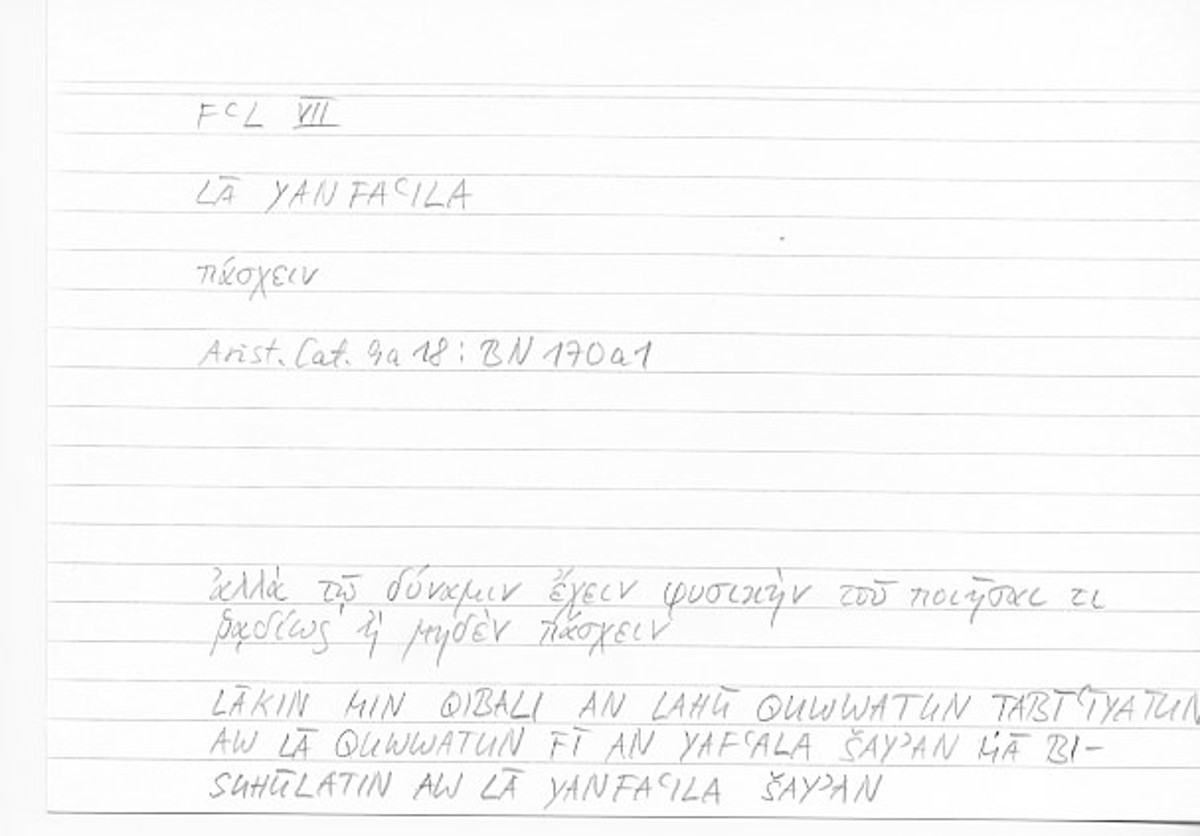 FʿL VII
LĀ YANFAʿILA
πάσχειν
Arist. Cat. 9a 18 : BN 170a1
ἀλλὰ τῷ δύναμιν ἔχειν φυσικὴν τοῦ ποιῆσαί τι
ῥᾳδίως ἢ μηδὲν πάσχειν
LĀKIN MIN QIBALI AN LAHŪ QUWWATUN TABĪʿĪYATUN
AW LĀ QUWWATUN FĪ AN YAFʿALA ŠAYʾAN MĀ BI-
SUHŪLATIN AW LĀ YANFAʿILA ŠAYʾAN